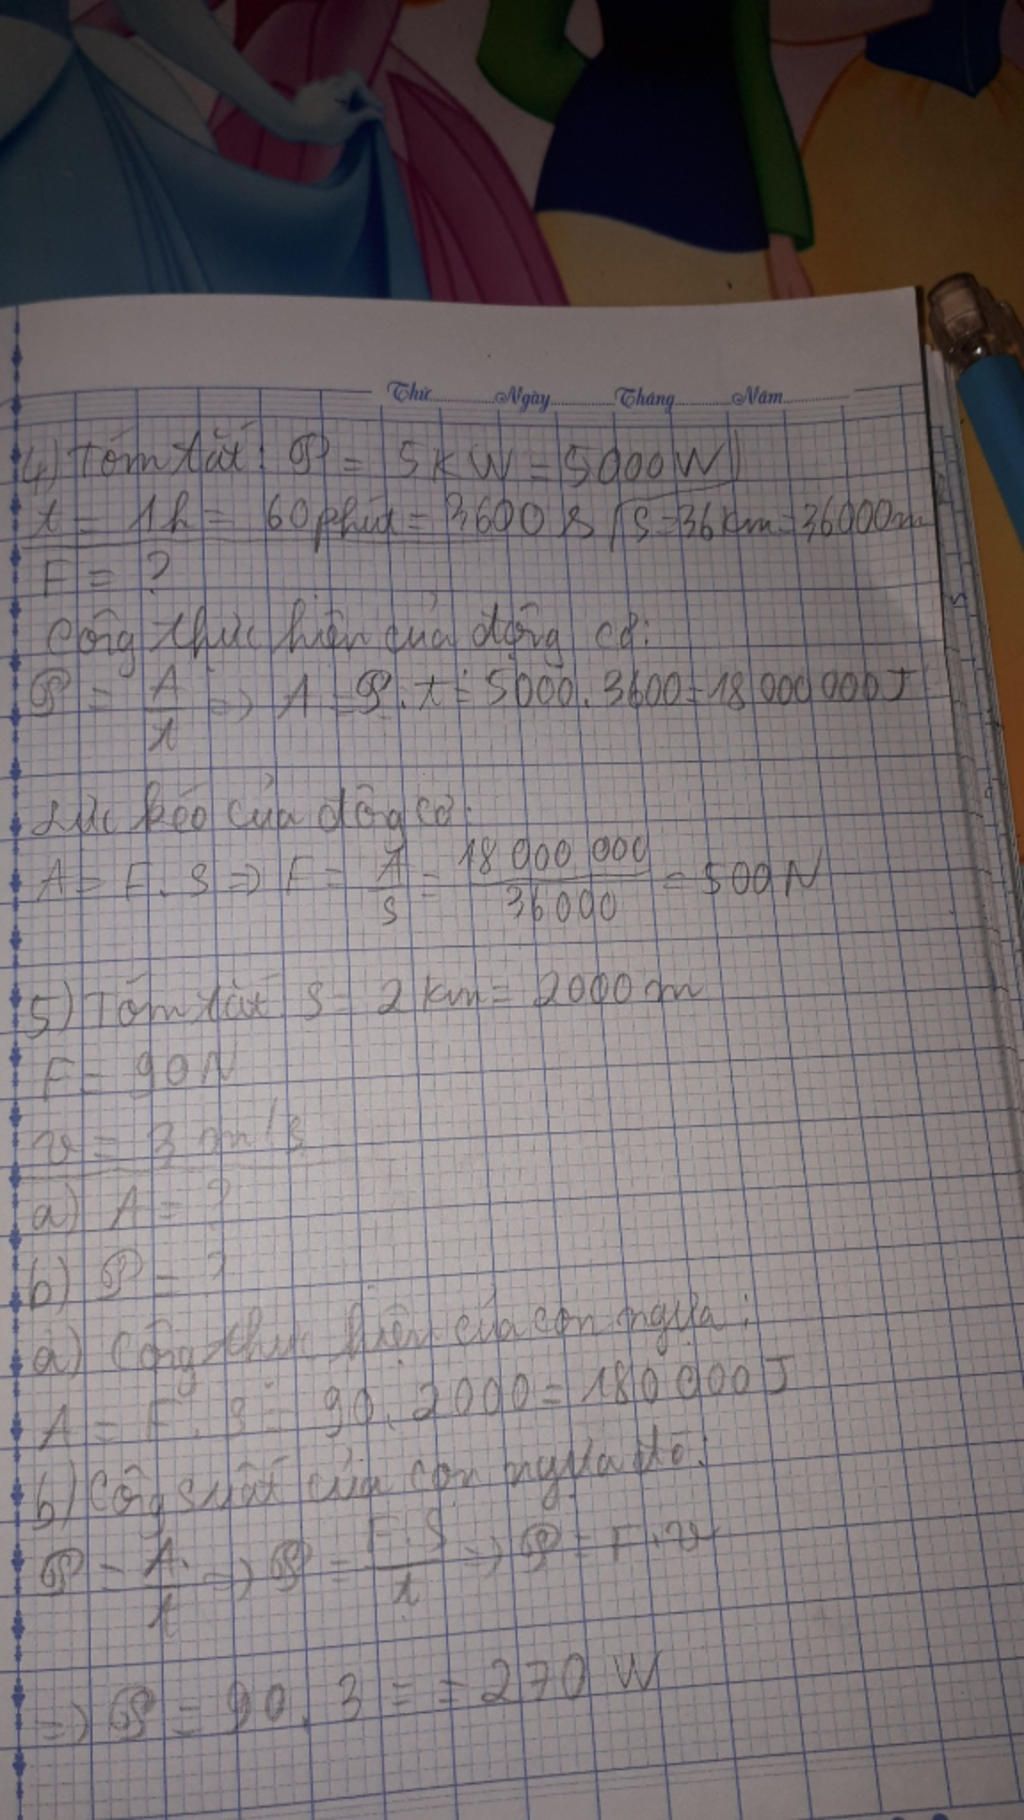 Thứ Ngày Tháng Năm
4) Tóm tắt: P = 5KW = 5000W
t = 1h = 60 phút = 3600 s / S = 36 km = 36000m
F = ?
Công thực hiện của động cơ:
P = A/t => A = P.t = 5000.3600 = 18 000 000 J
Lực kéo của động cơ:
A = F.S => F = A/S = 18 000 000/36 000 = 500N
5) Tóm tắt S = 2 km = 2000 m
F = 90N
v = 3 m/s
a) A = ?
b) P = ?
a) Công thực hiện của con ngựa:
A = F.S = 90.2000 = 180 000 J
b) Công suất của con ngựa đó:
P = A/t => P = F.S/t => P = F.v
=> P = 90.3 = = 270 W